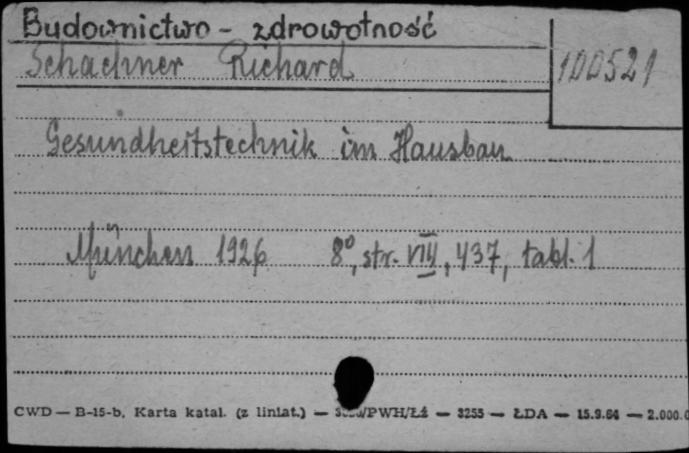 Budownictwo - zdrowotność
Schachner Richard
100521
Gesundheitstechnik im Hausbau
München 1926 8°, str. VIII, 437, tabl. 1
CWD — B-15-b, Karta katal. (z liniat.) — /PWH/Łź — 3255 — ŁDA — 15.9.64 — 2.000.0